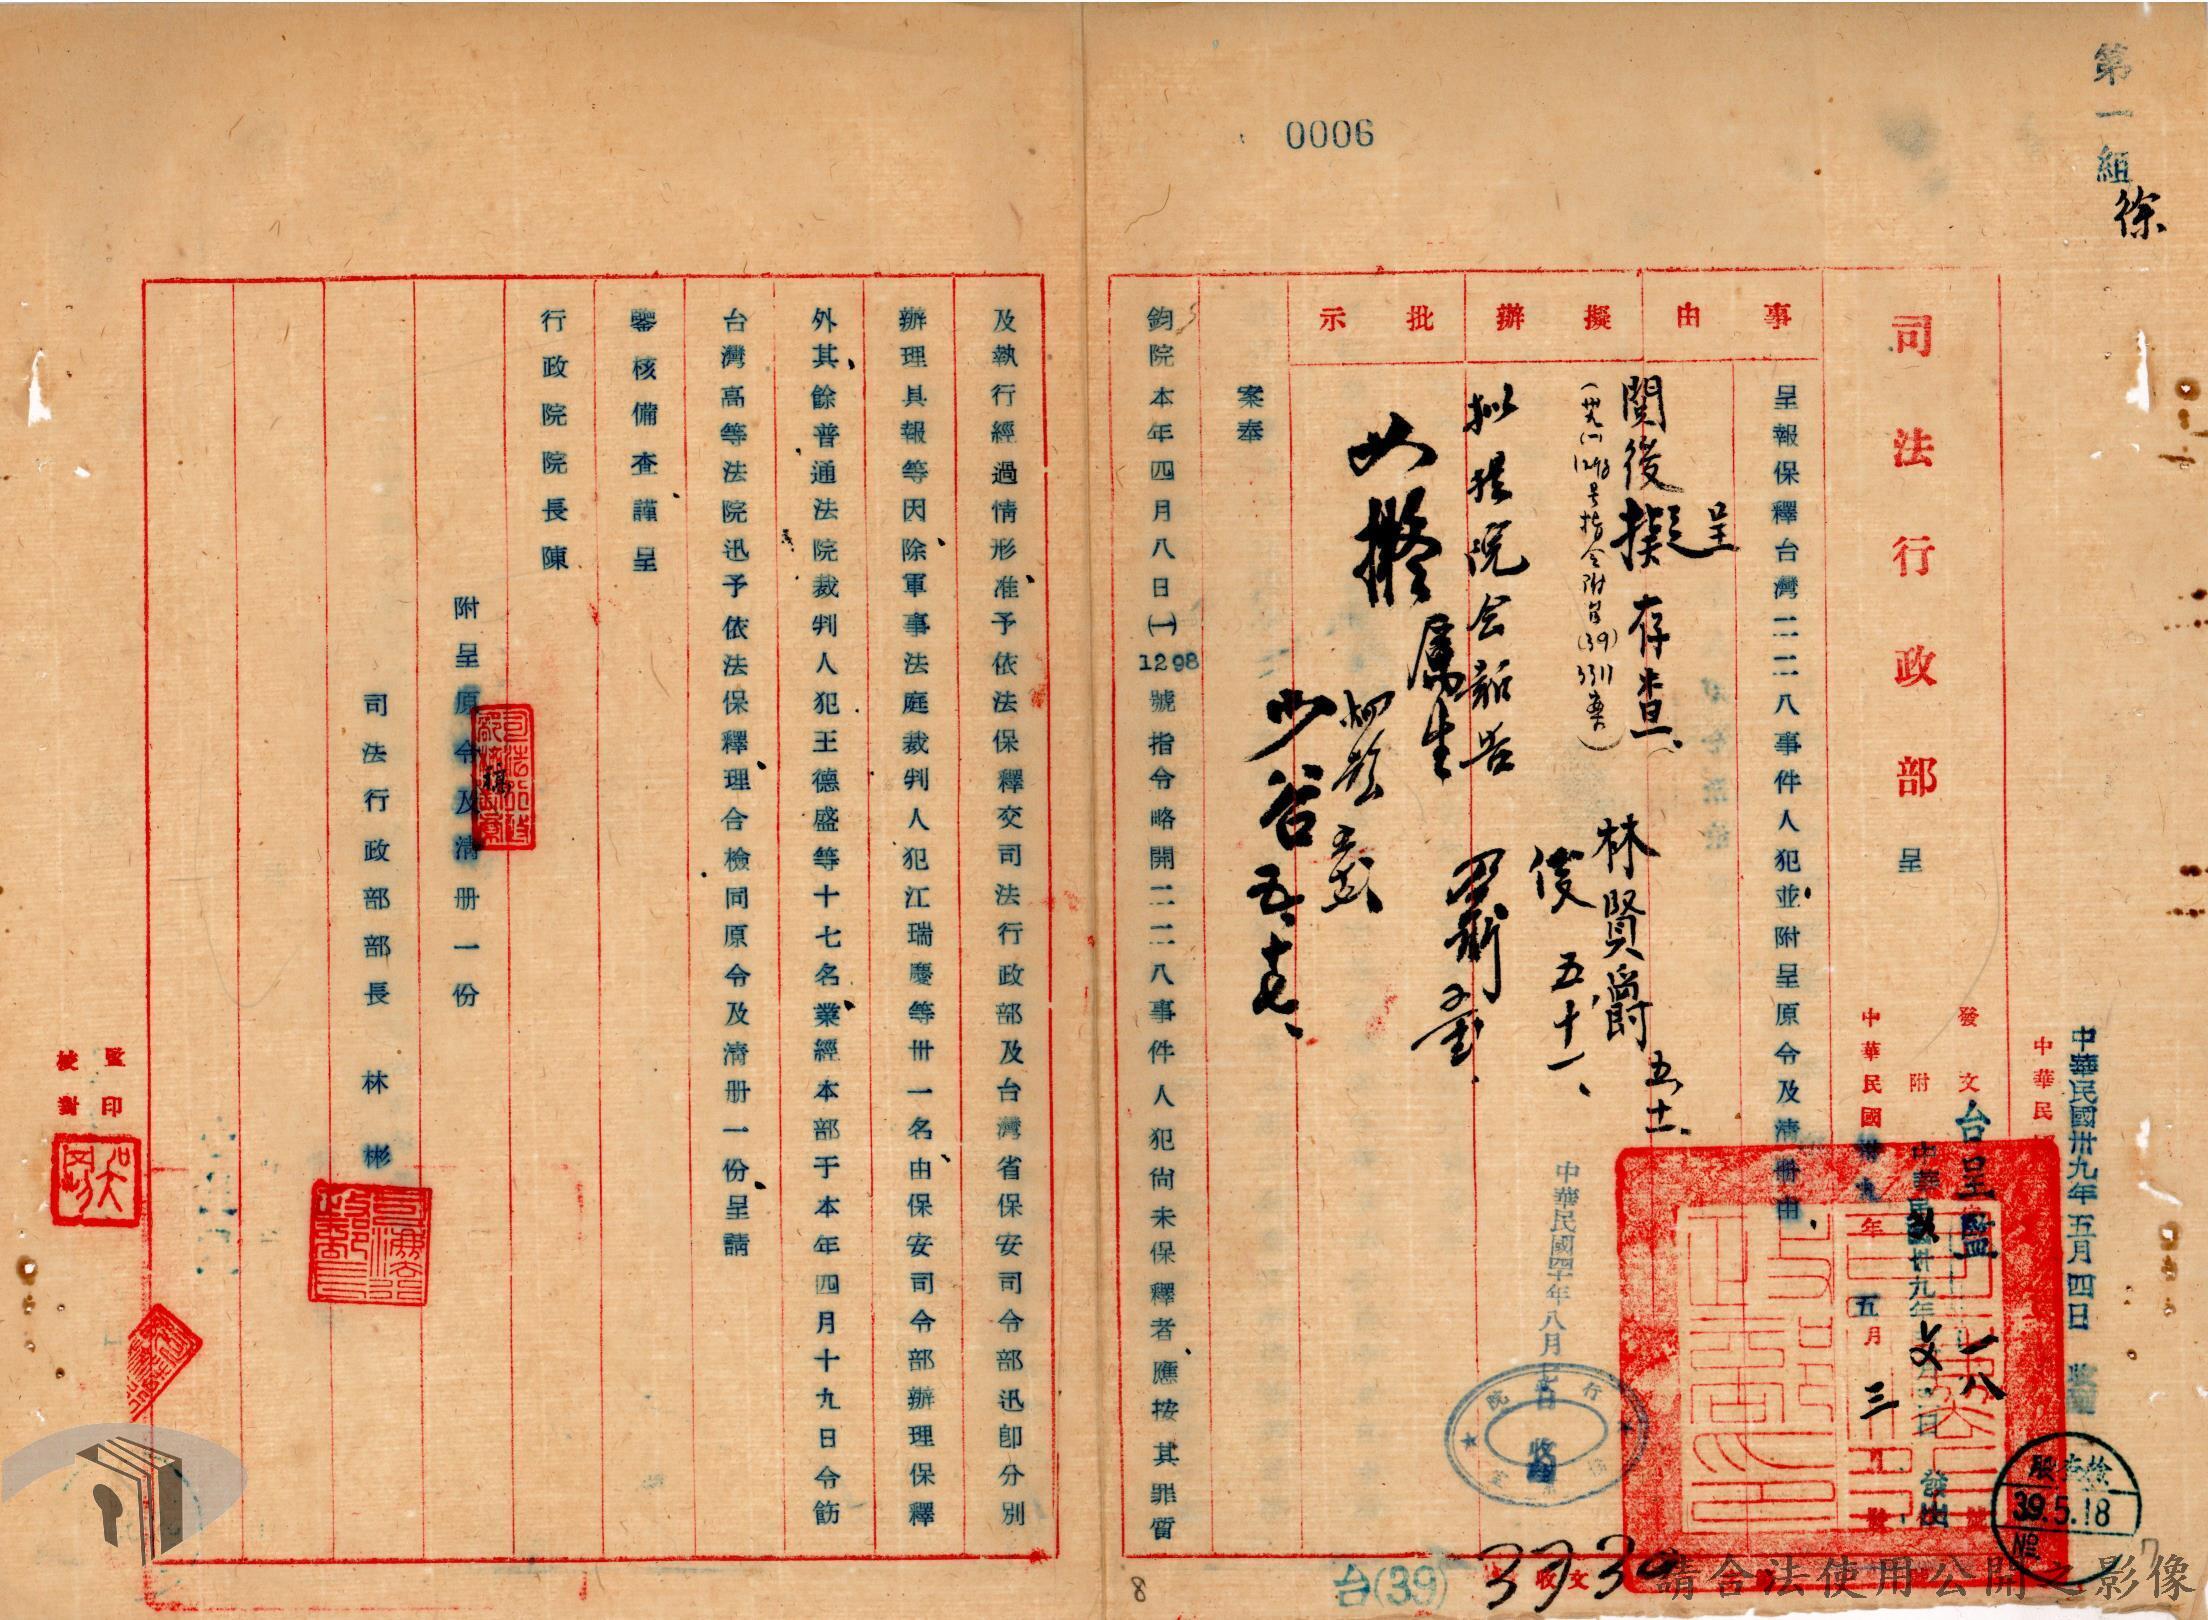 第一組
徐
0006
中華民國卅九年五月四日
發文
台呈監
一八
附
中華民國卅九年五月三日
發出
司法行政部 呈
呈報保釋台灣二二八事件人犯並附呈原令及清冊由
事由
擬辦
批示
呈
閱後擬存查
林賢爵
五、十一、
俊 五、十一、
擬提院會報告
如擬
少谷 五、十七、
案奉
鈞院本年四月八日(一)1298號指令略開二二八事件人犯尚未保釋者應按其罪質
及執行經過情形准予依法保釋交司法行政部及台灣省保安司令部迅卽分別
辦理具報等因除軍事法庭裁判人犯江瑞慶等卅一名由保安司令部辦理保釋
外其餘普通法院裁判人犯王德盛等十七名業經本部于本年四月十九日令飭
台灣高等法院迅予依法保釋理合檢同原令及清冊一份呈請
鑒核備查謹呈
行政院院長陳
附呈原令及清冊一份
司法行政部部長 林 彬
監印
校對
中華民國四十年八月
檢查股
39.5.18
收文
台(39)
3330
8
7
請合法使用公開之影像